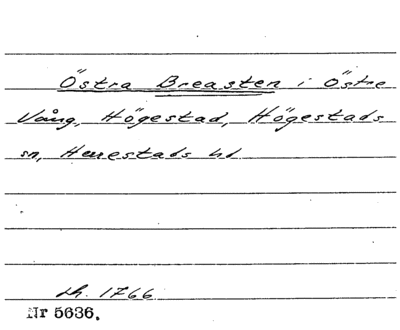 Östra Breasten i Östre
Vång, Högestad, Högestads
sn, Herrestads hd
Lh. 1766
Nr 5636.